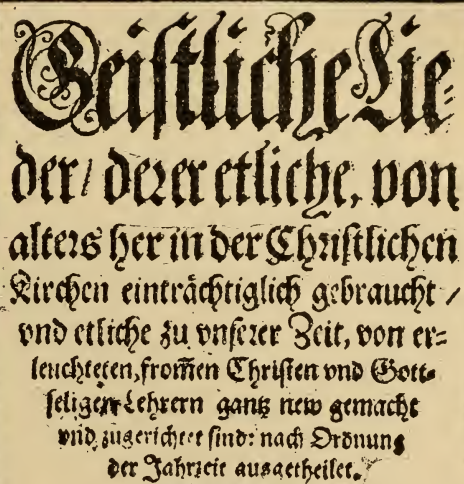 Geistliche Lie⸗
der / derer etliche, von
alters her in der Christlichen
Kirchen einträchtiglich gebraucht /
vnd etliche zu vnserer Zeit, von er⸗
leuchteten, from̄en Christen vnd Gott⸗
seligen Lehrern gantz new gemacht
vnd zugerichtet sind: nach Ordnung
der Jahrzeit ausgetheilet.